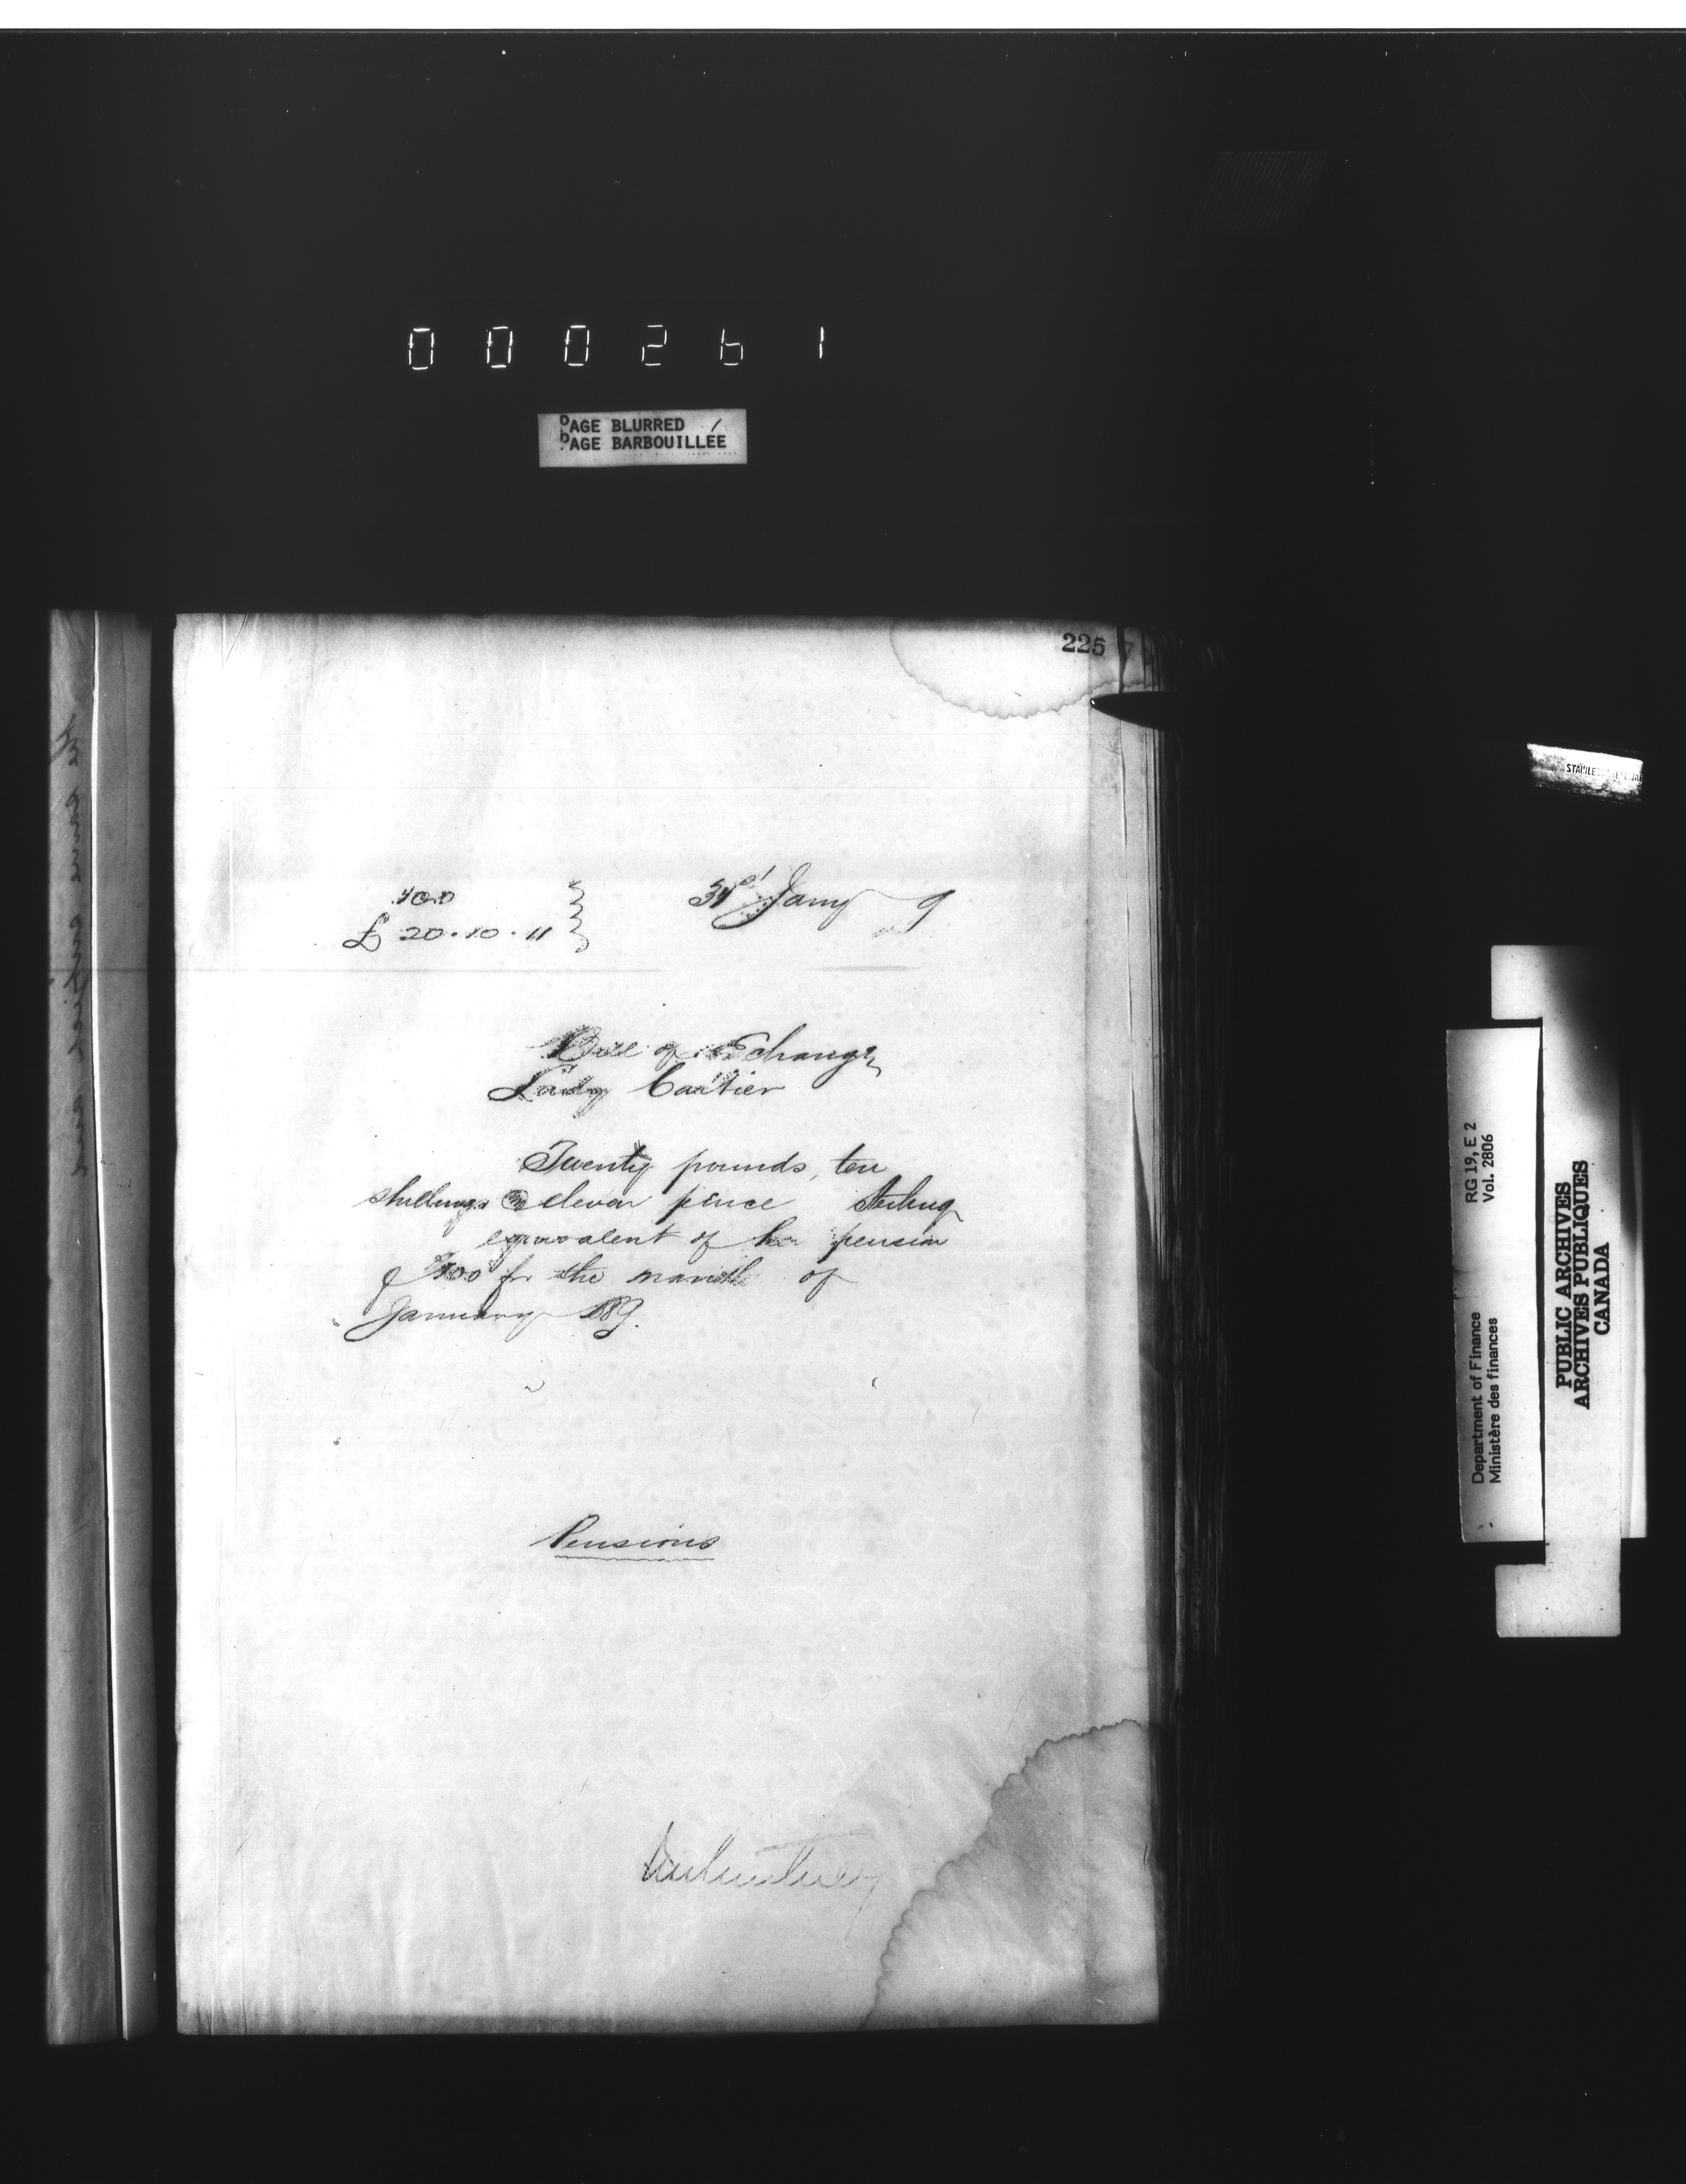 000261
PAGE BLURRED
PAGE BARBOUILLÉE
225
31st Jany 9
£ 20.10.11
Bill of Exchange
Lady Cartier
Twenty pounds, ten
shillings & eleven pence Sterling
equivalent of her pension
of $100 for the month of
January 189.
Pensions
RG 19, E 2
Vol. 2806
Department of Finance
Ministère des finances
PUBLIC ARCHIVES
ARCHIVES PUBLIQUES
CANADA